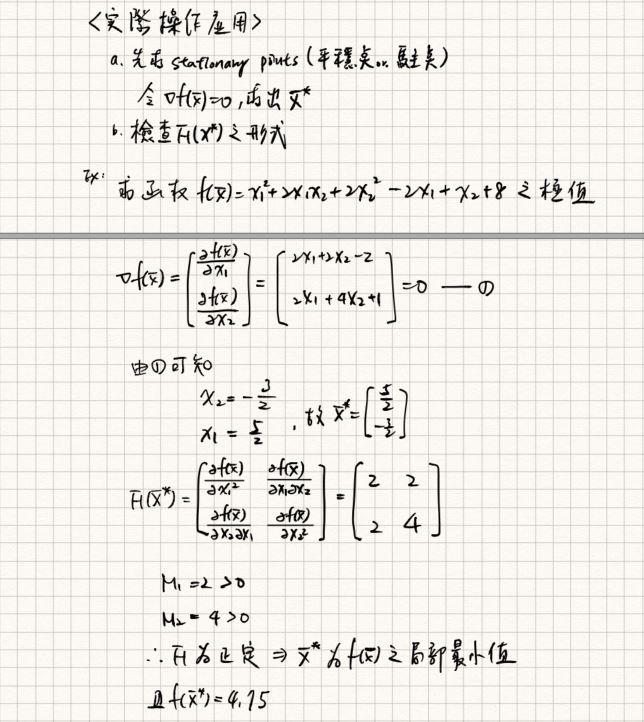 <實際操作應用>
a. 先求 stationary points (平穩點or.駐點)
令 ∇f(x̄)=0,求出 x̄*
b. 檢查 H̄(x*) 之形式
Ex: 求函數 f(x̄)=x₁²+2x₁x₂+2x₂²-2x₁+x₂+8 之極值
∇f(x̄) = [∂f(x̄)/∂x₁ ; ∂f(x̄)/∂x₂] = [2x₁+2x₂-2 ; 2x₁+4x₂+1] =0 — ①
由①可知
x₂=-3/2
x₁ = 5/2 , 故 x̄*=[5/2 ; -3/2]
H̄(x̄*) = [∂f(x̄)/∂x₁² ∂f(x̄)/∂x₁∂x₂ ; ∂f(x̄)/∂x₂∂x₁ ∂f(x̄)/∂x₂²] = [2 2 ; 2 4]
M₁ =2 >0
M₂ = 4 >0
∴ H̄ 為正定 ⇒ x̄* 為 f(x̄) 之局部最小值
且 f(x̄*)=4.75